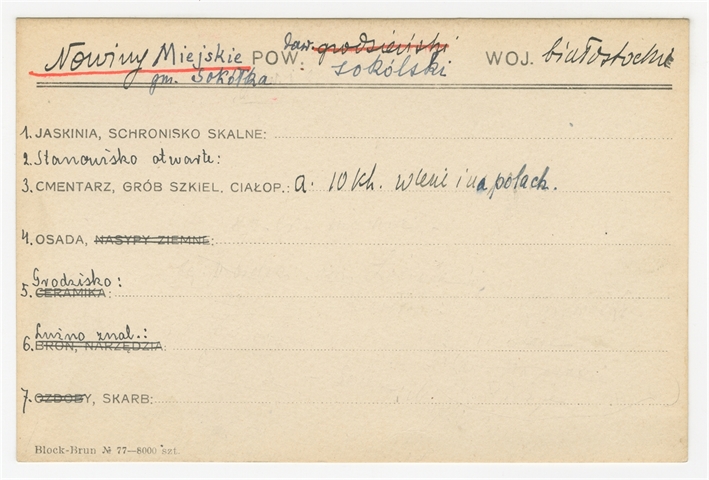 Nowiny Miejskie POW. daw. grodzieński WOJ. białostocki
gm. Sokółka sokólski
1. JASKINIA, SCHRONISKO SKALNE:
2. Stanowisko otwarte:
3. CMENTARZ, GRÓB SZKIEL. CIAŁOP.: a. 10 kh. w lesie i na polach.
4. OSADA, NASYPY ZIEMNE:
Grodzisko:
5. CERAMIKA:
Luźno znal.:
6. BROŃ, NARZĘDZIA:
7. OZDOBY, SKARB:
Block-Brun № 77—8000 szt.